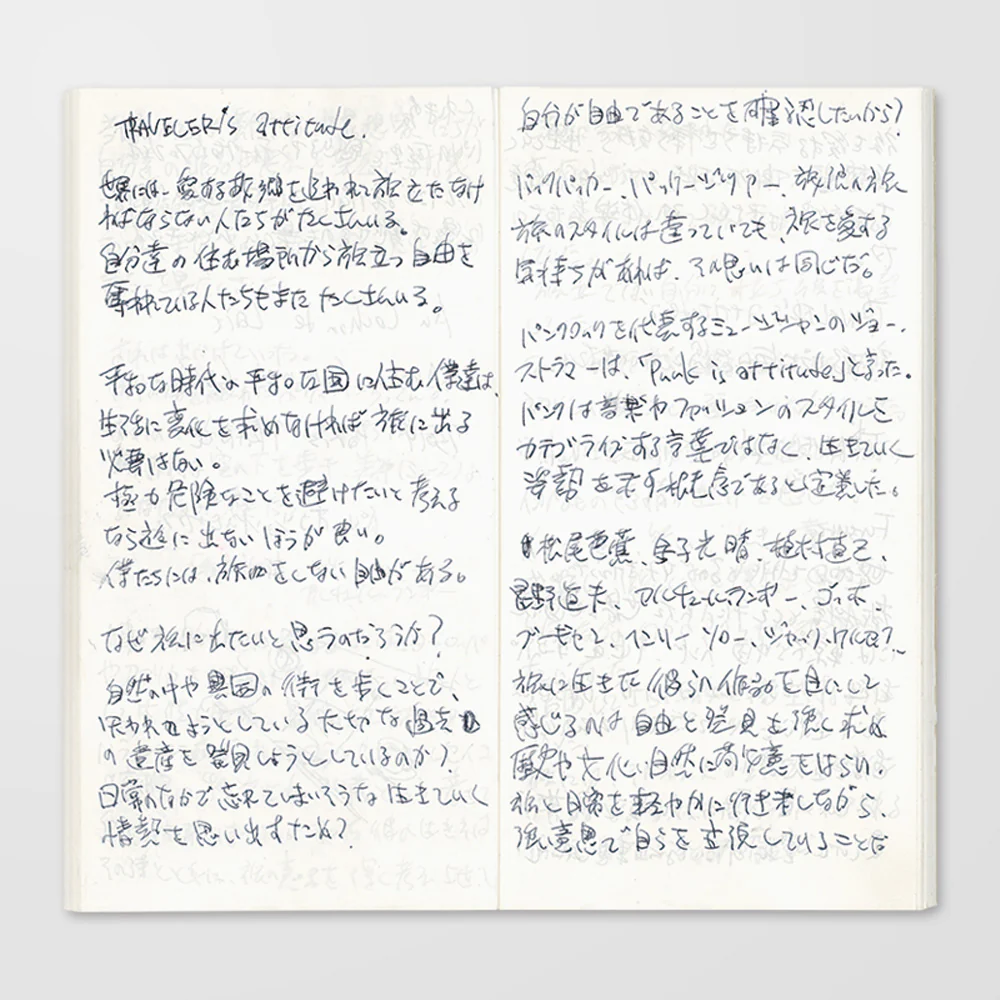 TRAVELER'S attitude.
世界には、愛する故郷を追われ旅立たなけ
ればならない人たちがたくさんいる。
自分達の住む場所から旅立つ自由を
奪われている人たちもまた たくさんいる。
平和な時代の平和な国に住む僕達は、
生活に変化を求めなければ旅に出る
必要はない。
極力危険なことを避けたいと考える
なら旅に出ないほうが良い。
僕たちには、旅をしない自由がある。
なぜ旅に出たいと思うのだろうか?
自然の中や異国の街を歩くことで、
失われようとしている大切な過去
の遺産を発見しようとしているのか?
日常のなかで忘れてしまいそうな生きていく
情熱を思い出すため?
自分が自由であることを確認したいから?
バックパッカー、パッケージツアー、放浪の旅
旅のスタイルは違っていても、旅を愛する
気持ちがあれば、その思いは同じだ。
パンクロックを代表するミュージシャンのジョー・
ストラマーは、「Punk is attitude」と言った。
パンクは音楽やファッションのスタイルを
カテゴライズする言葉ではなく、生きていく
姿勢を示す概念であると定義した。
松尾芭蕉、金子光晴、植村直己、
星野道夫、アルチュール・ランボー、ゴッホ、
ブーギャン、ヘンリー・ソロー、ジャック・ケルアック…
旅に生きた彼らの作品を目にして
感じるのは自由と発見を強く求め
歴史や文化、自然に敬意をはらい、
旅と日常を軽やかに行き来しながら
強い意思で自らを主張していることだ